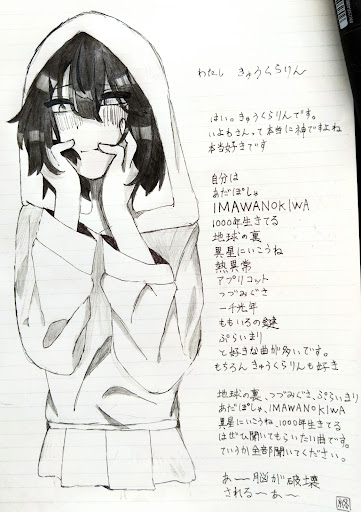 わたし きゅうくらりん
はい。きゅうくらりんです。
いよわさんって本当に神ですよね
本当好きです
自分は
あだぽしゃ
IMAWANOKIWA
1000年生きてる
地球の裏
異星にいこうね
熱異常
アプリコット
つづみぐさ
一千光年
ももいろの鍵
ぷらいまり
と好きな曲が多いです。
もちろん きゅうくらりんも好き
地球の裏、つづみぐさ、ぷらいまり
あだぽしゃ、IMAWANOKIWA
異星にいこうね、1000年生きてる
はぜひ聞いてもらいたい曲です。
ていうか全部聞いてください。
あー脳が破壊
される〜あ〜